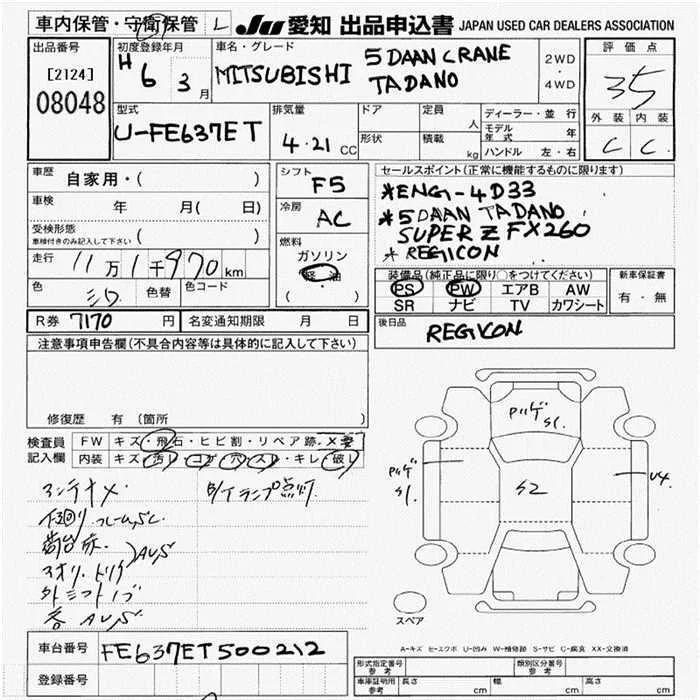 車内保管・守衛保管 L JU 愛知 出品申込書 JAPAN USED CAR DEALERS ASSOCIATION
出品番号
[2124]
08048
初度登録年月
H 6 3月
車名・グレード
MITSUBISHI 5 DAAN CRANE
TADANO
2WD
・
4WD
評価点
3.5
外装 内装
C C
型式
U-FE637ET
排気量
4.21 CC
ドア
形状
定員
人
積載
kg
ディーラー・並行
モデル年式 年
ハンドル 左・右
車歴
自家用・( )
車検 年 月( 日)
受検形態
車検付きのみ記入して下さい ( )
走行 11万1千970km
色 シロ 色替 色コード
シフト
F5
冷房
AC
燃料
ガソリン
軽油
( )
セールスポイント(正常に機能するものに限ります)
*ENG-4D33
*5DAAN TADANO
SUPER Z FX260
* REGICON
装備品(純正品に限り○をつけてください)
PS PW エアB AW
SR ナビ TV カワシート
新車保証書
有・無
R券 7170円 名変通知期限 月 日
後日品
REGICON
注意事項申告欄(不具合内容等は具体的に記入して下さい)
修復歴 有(箇所 )
検査員記入欄
FW キズ・飛石・ヒビ割・リペア跡・X要
内装 キズ・汚レ・コゲ・穴・スレ・キレ・破レ
B/Tランプ点灯
下回リ フレームS,C
AU,S
アオリ・トリイ
外シフトノブ
AU,S
ハゲ
S1.
ハゲ
S1.
S2
U4
スペア
A-キズ E-エクボ U-凹み W-補修跡 S-サビ C-腐食 XX-交換済
車台番号 FE637ET500212
登録番号
形式指定番号
参考
類別区分番号
参考
車庫証明用
参考
長さ cm 幅 cm 高さ cm